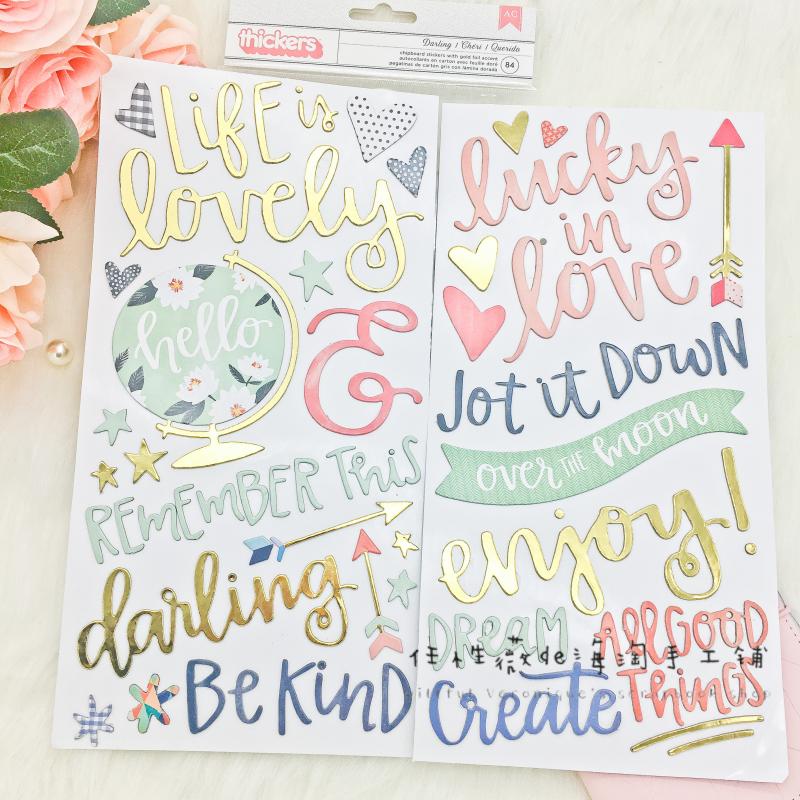 thickers
AC
Darling / Chéri / Querida
chipboard stickers with gold foil accent
autocollants en carton avec feuille doré
pegatinas de cartón gris con lámina dorada
84
Life is
lovely
hello
&
Remember This
darling
Be Kind
lucky
in
love
Jot it Down
over the moon
enjoy!
Dream
All Good
Things
Create
佳性薇de海淘手工铺
Veronique's scrapbook shop